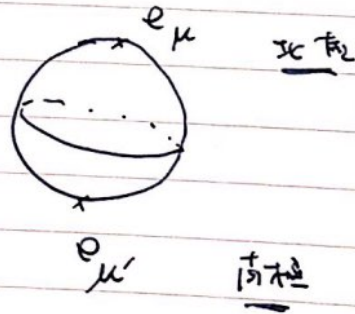 e_μ
北极
e_μ'
南极